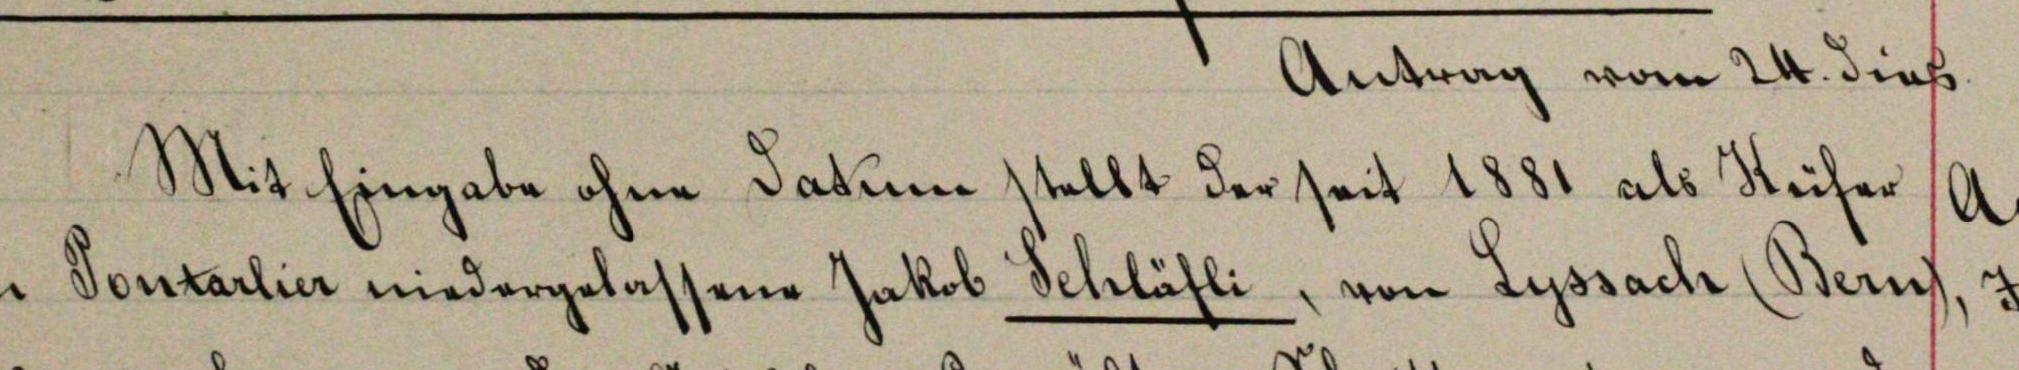 Antrag vom 24. dies.
Mit Eingabe ohne Datum stellt der seit 1881 als Küfer
Pontarlier niedergelassene Jakob Schläfli, von Lyssach (Bern),